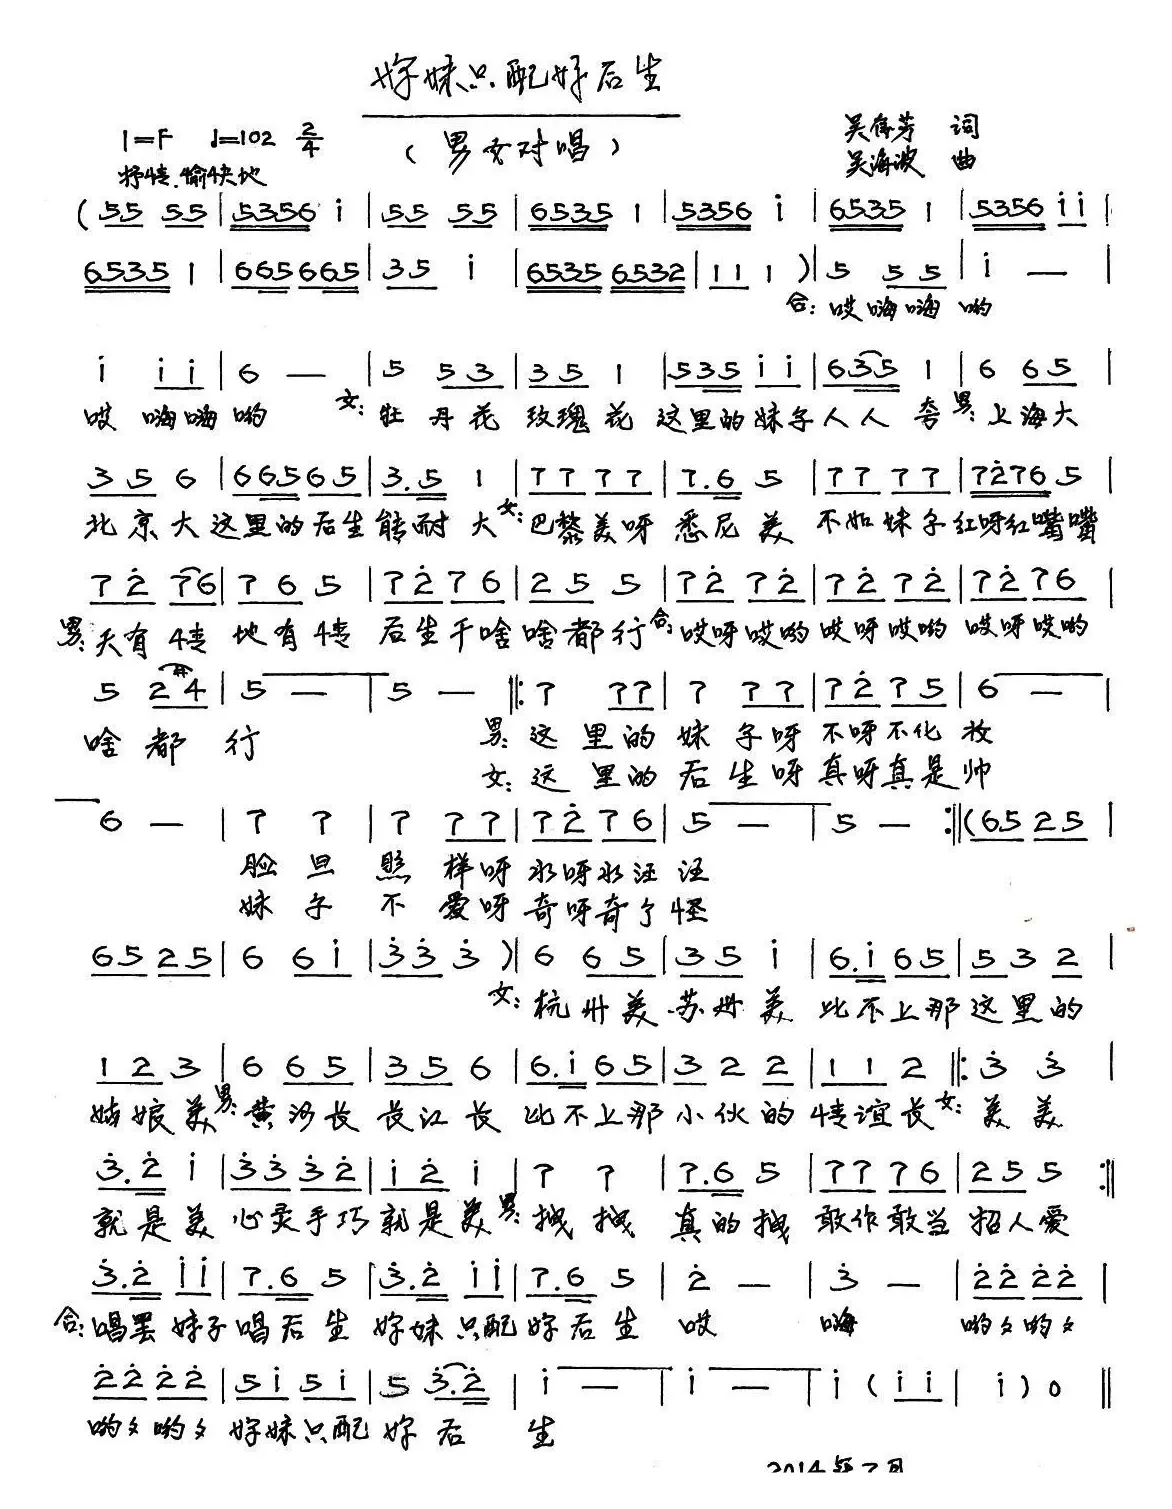 好妹只配好后生
1=F ♩=102 2/4
（男女对唱）
吴存芳 词
抒情.愉快地
吴海波 曲
(55 55|5356 i|55 55|6535 1|5356 i|6535 1|5356 ii|
6535 1|665665|35 i|6535 6532|11 1)|5 55|i —|
合:哎嗨嗨哟
i ii|6 —|5 53|35 1|535 ii|635 1|6 65|
哎嗨嗨哟 女:牡丹花 玫瑰花 这里的妹子人人夸 男:上海大
35 6|66565|3.5 1|77 77|7.6 5|77 77|7276 5|
北京大这里的后生能耐大 女:巴黎美呀悉尼美 不如妹子红呀红嘴嘴
72 76|76 5|72 76|25 5|72 72|72 72|72 76|
男:天有情 地有情 后生干啥啥都行 合:哎呀哎哟哎呀哎哟 哎呀哎哟
5 2#4|5 —|5 —|:7 77|7 77|72 75|6 —|
啥都行 男:这里的妹子呀不呀不化妆
女:这里的后生呀真呀真是帅
6 —|7 7|7 77|72 76|5 —|5 —:|(65 25|
脸旦照样呀水呀水汪汪
妹子不爱呀奇呀奇了怪
65 25|6 6i|33 3)|6 65|35 i|6.i 65|53 2|
女:杭州美 苏州美 比不上那这里的
12 3|6 65|35 6|6.i 65|32 2|11 2|:3 3|
姑娘美 男:黄河长 长江长 比不上那小伙的情谊长 女:美美
3.2 i|33 32|i2 i|7 7|7.6 5|77 76|25 5:|
就是美 心灵手巧就是美 男:拽拽 真的拽 敢作敢当招人爱
3.2 ii|7.6 5|3.2 ii|7.6 5|2 —|3 —|22 22|
合:唱罢妹子唱后生 好妹只配好后生 哎 嗨 哟々哟々
22 22|5i 5i|5 3.2|i —|i —|i (ii|i) 0‖
哟々哟々 好妹只配好后生
2014年7月